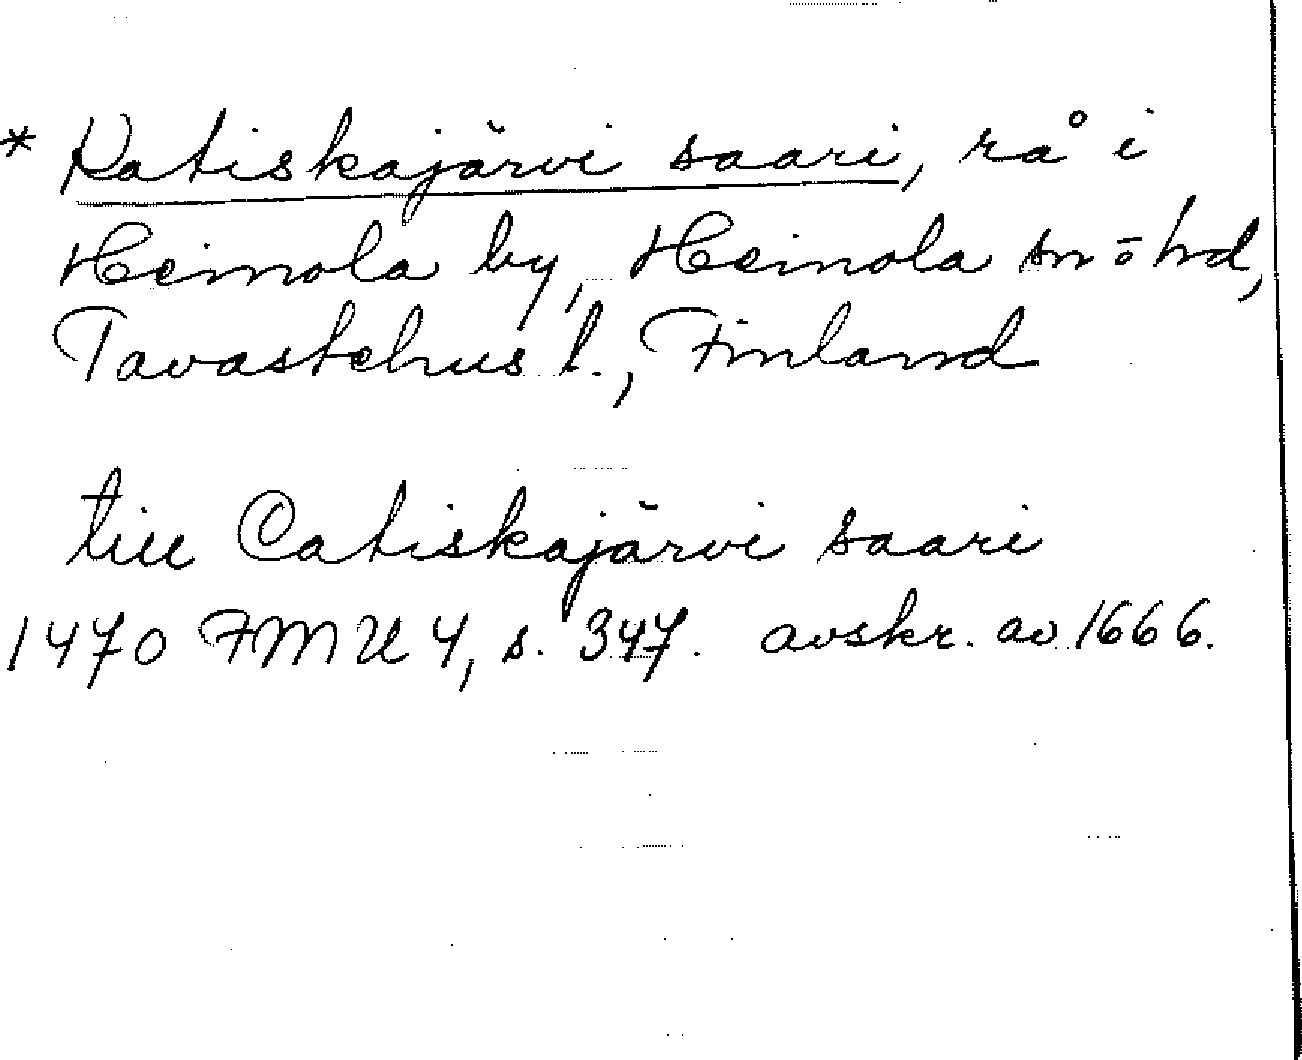 * Katiskajärvi saari, rå i
Heinola by, Heinola sn o hd,
Tavastehus l., Finland
till Catiskajärvi saari
1470 FMU 4, s. 347. avskr. av 1666.